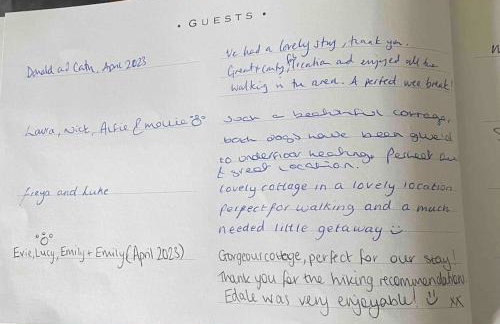 • GUESTS •
Donald and Cath, April 2023
We had a lovely stay, thank you.
Great cottage, location and enjoyed all the
walking in the area. A perfect wee break!
Laura, Nick, Alfie & mollie
Such a beautiful cottage,
both dogs have been glued
to underfloor heating. Perfect
& great location.
Freya and Luke
Lovely cottage in a lovely location
Perfect for walking and a much
needed little getaway
Evie, Lucy, Emily + Emily (April 2023)
Gorgeous cottage, perfect for our stay!
Thank you for the hiking recommendations
Edale was very enjoyable! xx